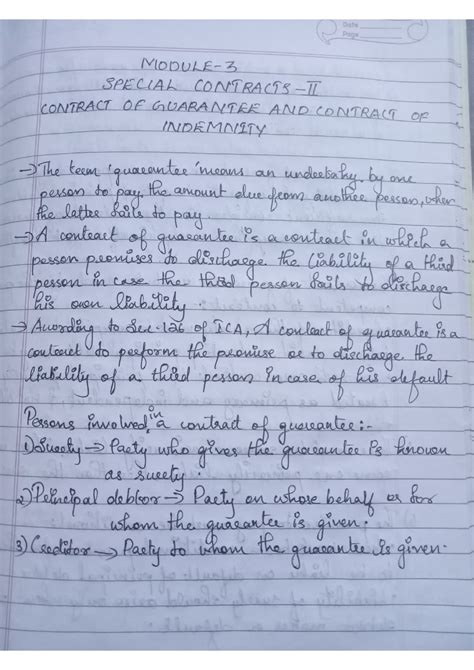 Date
Page
MODULE-3
SPECIAL CONTRACTS-II
CONTRACT OF GUARANTEE AND CONTRACT OF
INDEMNITY
→ The term 'guarantee' means an undertaking by one
person to pay the amount due from another person, when
the latter fails to pay.
→ A contract of guarantee is a contract in which a
person promises to discharge the liability of a third
person in case the third person fails to discharge
his own liability.
→ According to Sec.126 of ICA, A contract of guarantee is a
contract to perform the promise or to discharge the
liability of a third person in case of his default
Persons involved in a contract of guarantee:-
1) Surety → Party who gives the guarantee is known
as surety.
2) Principal debtor → Party on whose behalf or for
whom the guarantee is given.
3) Creditor → Party to whom the guarantee is given.